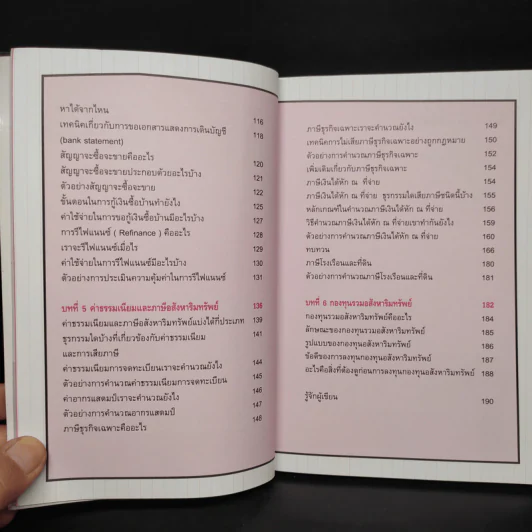 หาได้จากไหน 116
เทคนิคเกี่ยวกับการขอเอกสารแสดงการเดินบัญชี 118
(bank statement)
สัญญาจะซื้อจะขายคืออะไร 120
สัญญาจะซื้อจะขายประกอบด้วยอะไรบ้าง 121
ตัวอย่างสัญญาจะซื้อจะขาย 122
ขั้นตอนในการกู้เงินซื้อบ้านทำยังไง 125
ค่าใช้จ่ายในการขอกู้เงินซื้อบ้านมีอะไรบ้าง 127
การรีไฟแนนซ์ ( Refinance ) คืออะไร 128
เราจะรีไฟแนนซ์เมื่อไร 129
ค่าใช้จ่ายในการรีไฟแนนซ์มีอะไรบ้าง 130
ตัวอย่างการประเมินความคุ้มค่าในการรีไฟแนนซ์ 131
บทที่ 5 ค่าธรรมเนียมและภาษีอสังหาริมทรัพย์ 136
ค่าธรรมเนียมและภาษีอสังหาริมทรัพย์แบ่งได้กี่ประเภท 139
ธุรกรรมใดบ้างที่เกี่ยวข้องกับค่าธรรมเนียม 141
และการเสียภาษี
ค่าธรรมเนียมการจดทะเบียนเราจะคำนวณยังไง 144
ตัวอย่างการคำนวณค่าธรรมเนียมการจดทะเบียน 145
ค่าอากรแสตมป์เราจะคำนวณยังไง 146
ตัวอย่างการคำนวณอากรแสตมป์ 147
ภาษีธุรกิจเฉพาะคืออะไร 148
ภาษีธุรกิจเฉพาะเราจะคำนวณยังไง 149
เทคนิคการไม่เสียภาษีธุรกิจเฉพาะอย่างถูกกฎหมาย 150
ตัวอย่างการคำนวณภาษีธุรกิจเฉพาะ 152
เพิ่มเติมเกี่ยวกับภาษีธุรกิจเฉพาะ 154
ภาษีเงินได้หัก ณ ที่จ่าย 154
ภาษีเงินได้หัก ณ ที่จ่าย ธุรกรรมใดเสียภาษีชนิดนี้บ้าง 155
หลักเกณฑ์ในคำนวณภาษีเงินได้หัก ณ ที่จ่าย 156
วิธีคำนวณภาษีเงินได้หัก ณ ที่จ่ายเขาทำกันยังไง 159
ตัวอย่างการคำนวณภาษีเงินได้หัก ณ ที่จ่าย 160
ทบทวน 166
ภาษีโรงเรือนและที่ดิน 180
ตัวอย่างการคำนวณภาษีโรงเรือนและที่ดิน 181
บทที่ 6 กองทุนรวมอสังหาริมทรัพย์ 182
กองทุนรวมอสังหาริมทรัพย์คืออะไร 184
ลักษณะของกองทุนรวมอสังหาริมทรัพย์ 185
รูปแบบของกองทุนอสังหาริมทรัพย์ 186
ข้อดีของการลงทุนกองทุนอสังหาริมทรัพย์ 187
อะไรคือสิ่งที่ต้องดูก่อนการลงทุนกองทุนอสังหาริมทรัพย์ 188
รู้จักผู้เขียน 190